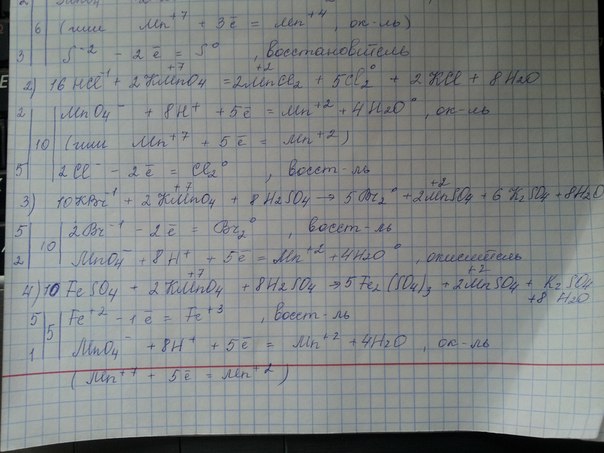 6 (или Mn⁺⁷ + 3ē = Mn⁺⁴, ок-ль)
3 S⁻² - 2ē = S⁰, восстановитель
2) 16 HCl⁻¹ + 2 KMn⁺⁷O4 = 2Mn⁺²Cl2 + 5Cl2⁰ + 2 KCl + 8 H2O
2 MnO4⁻ + 8H⁺ + 5ē = Mn⁺² + 4H2O⁰, ок-ль
10 (или Mn⁺⁷ + 5ē = Mn⁺²)
5 2Cl⁻ - 2ē = Cl2⁰, восст-ль
3) 10KBr⁻¹ + 2 KMn⁺⁷O4 + 8 H2SO4 → 5 Br2⁰ + 2Mn⁺²SO4 + 6 K2SO4 + 8H2O
5 10 2Br⁻¹ - 2ē = Br2⁰, восст-ль
2 MnO4⁻ + 8H⁺ + 5ē = Mn⁺² + 4H2O⁰, окислитель
4) 10 FeSO4 + 2 KMn⁺⁷O4 + 8H2SO4 → 5Fe2(SO4)3 + 2Mn⁺²SO4 + K2SO4
+8 H2O
5 5 Fe⁺² - 1ē = Fe⁺³, восст-ль
1 MnO4⁻ + 8H⁺ + 5ē = Mn⁺² + 4H2O, ок-ль
(Mn⁺⁷ + 5ē = Mn⁺²)